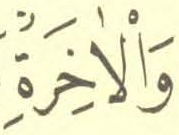 وَاْلاٰخِرَةِ